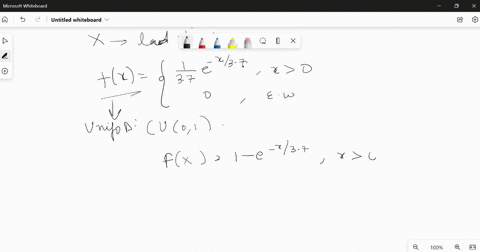 Microsoft Whiteboard
Untitled whiteboard
X → lead
f(x) = { 1/3.7 e^{-x/3.7} , x > 0
0 , E.W
Unifob: (U(0,1)
F(x) = 1 - e^{-x/3.7} , x >
100%